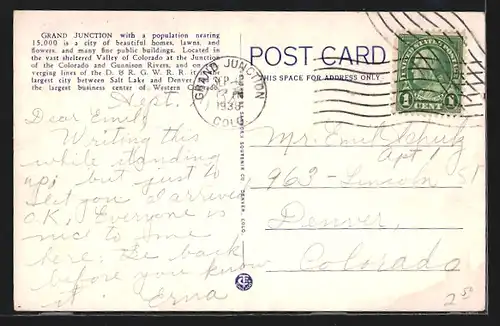 GRAND JUNCTION with a population nearing
15,000 is a city of beautiful homes, lawns, and
flowers, and many fine public buildings. Located in
the vast sheltered Valley of Colorado at the Junction
of the Colorado and Gunnison Rivers, and on
verging lines of the D. & R. G. W. R. R. it
largest city between Salt Lake and Denver
the largest business center of Western
Sept.
Dear Emil
Writing this
while standing
up, but just to
let you I arrived
O.K. Everyone is
nice to me
here. Be back
before you know
it. Erna
SOUVENIR CO. DENVER, COLO.
GRAND JUNCTION
1936
COLO.
POST CARD
THIS SPACE FOR ADDRESS ONLY
1 CENT 1
Mr. Emil Schulz
Apt 1
963 - Lincoln St
Denver,
Colorado
2 50